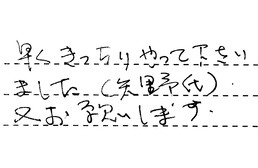 早くきっちりやって下さい
ました(矢野代).
又お願いします.